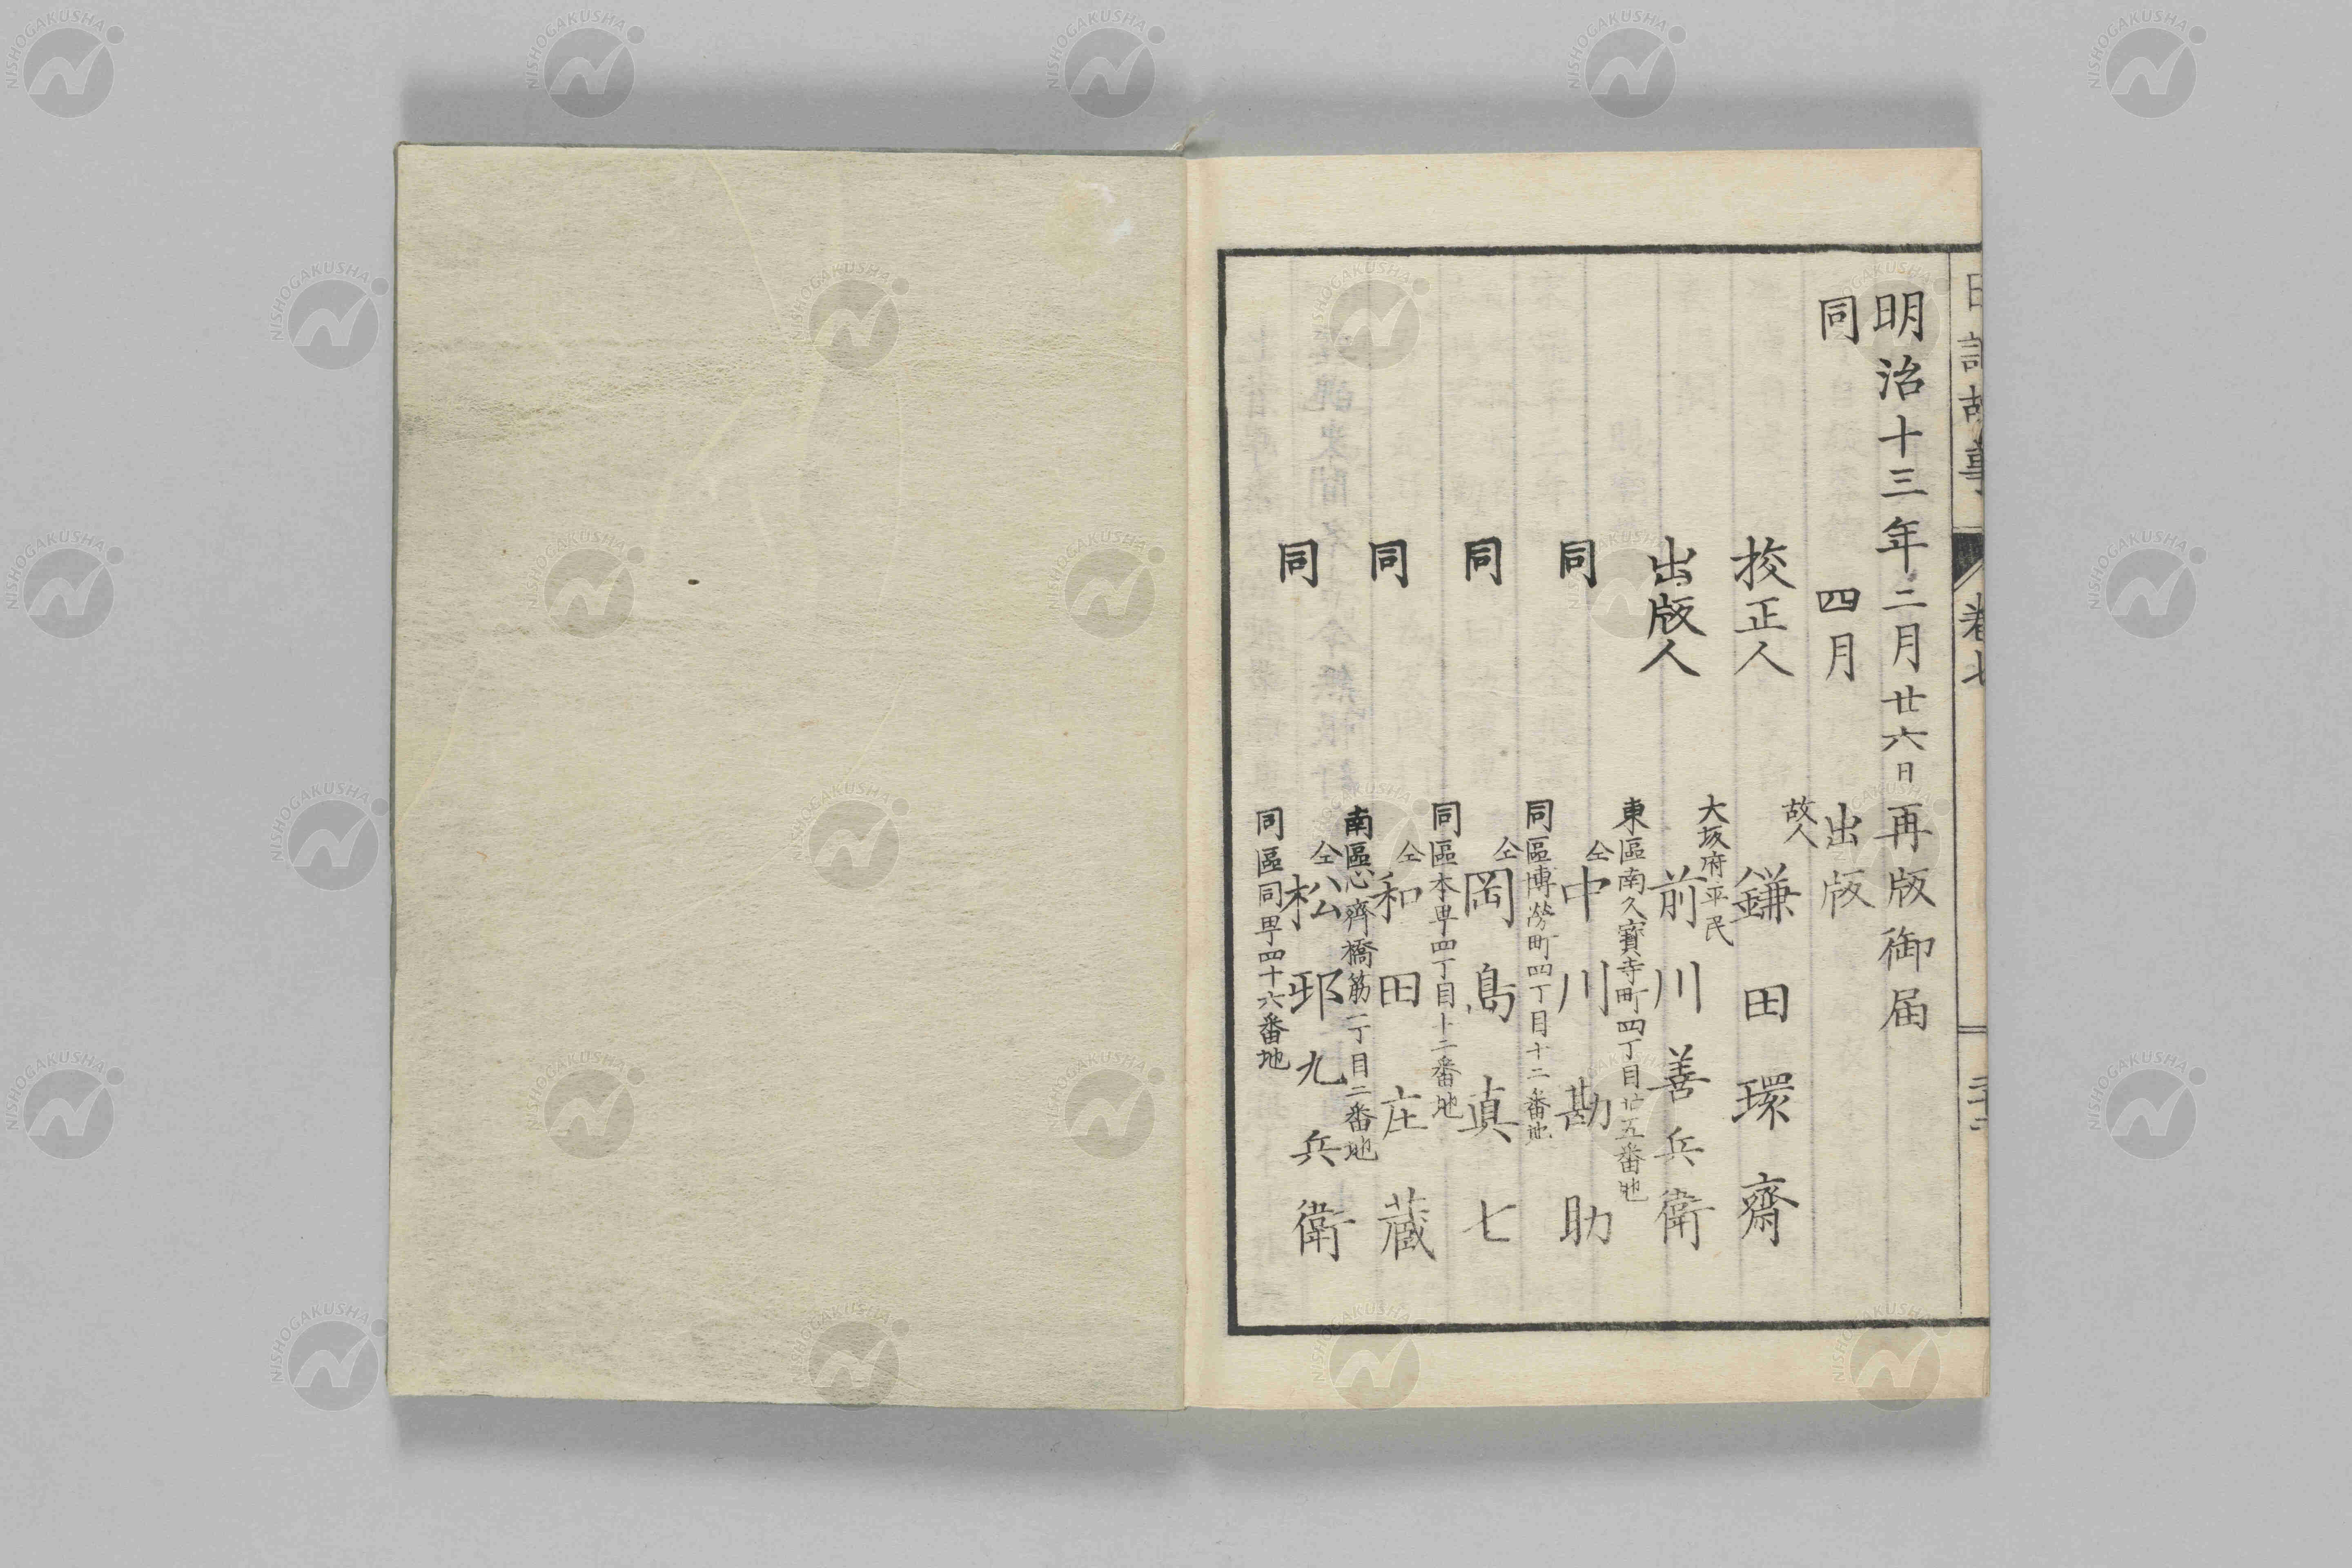 明治十三年二月廿六日再版御届
同 四月 出版
故人
挍正人 鎌田環齋
大坂府平民
出版人 前川善兵衛
東區南久寳寺町四丁目廿五番地
同 仝 中川勘助
同區博労町四丁目十二番地
同 仝 岡島真七
同區本甼四丁目十二番地
同 仝 和田庄藏
南區心齊橋筋二丁目二番地
同 仝 松邨九兵衛
同區同甼四十六番地
NISHOGAKUSHA